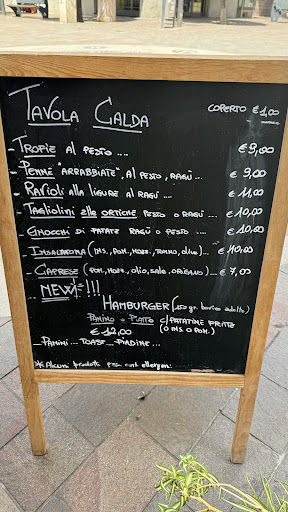 TAVOLA CALDA
COPERTO €1,00
- TROFIE AL PESTO .... €9,00
- PENNE "ARRABBIATE", AL PESTO, RAGÙ ... € 9,00
- RAVIOLI ALLA LIGURE AL RAGÙ .... € 11,00
- TAGLIOLINI ALLE ORTICHE PESTO O RAGÙ ... €10,00
- GNOCCHI DI PATATE RAGÙ O PESTO .... €10,00
- INSALATONA (INS, POM, MOZZ, TONNO, OLIVE) ... €10,00
- CAPRESE (POM, MOZZ, OLIO, SALE, ORIGANO) ... € 7,00
- NEW !!!
HAMBURGER (150 gr. bovino adulto)
PANINO O PIATTO C/PATATINE FRITTE
€ 12,00 (O INS. O POM.)
- PANINI ... TOAST ... PIADINE ...
* Alcuni prodotti allergeni